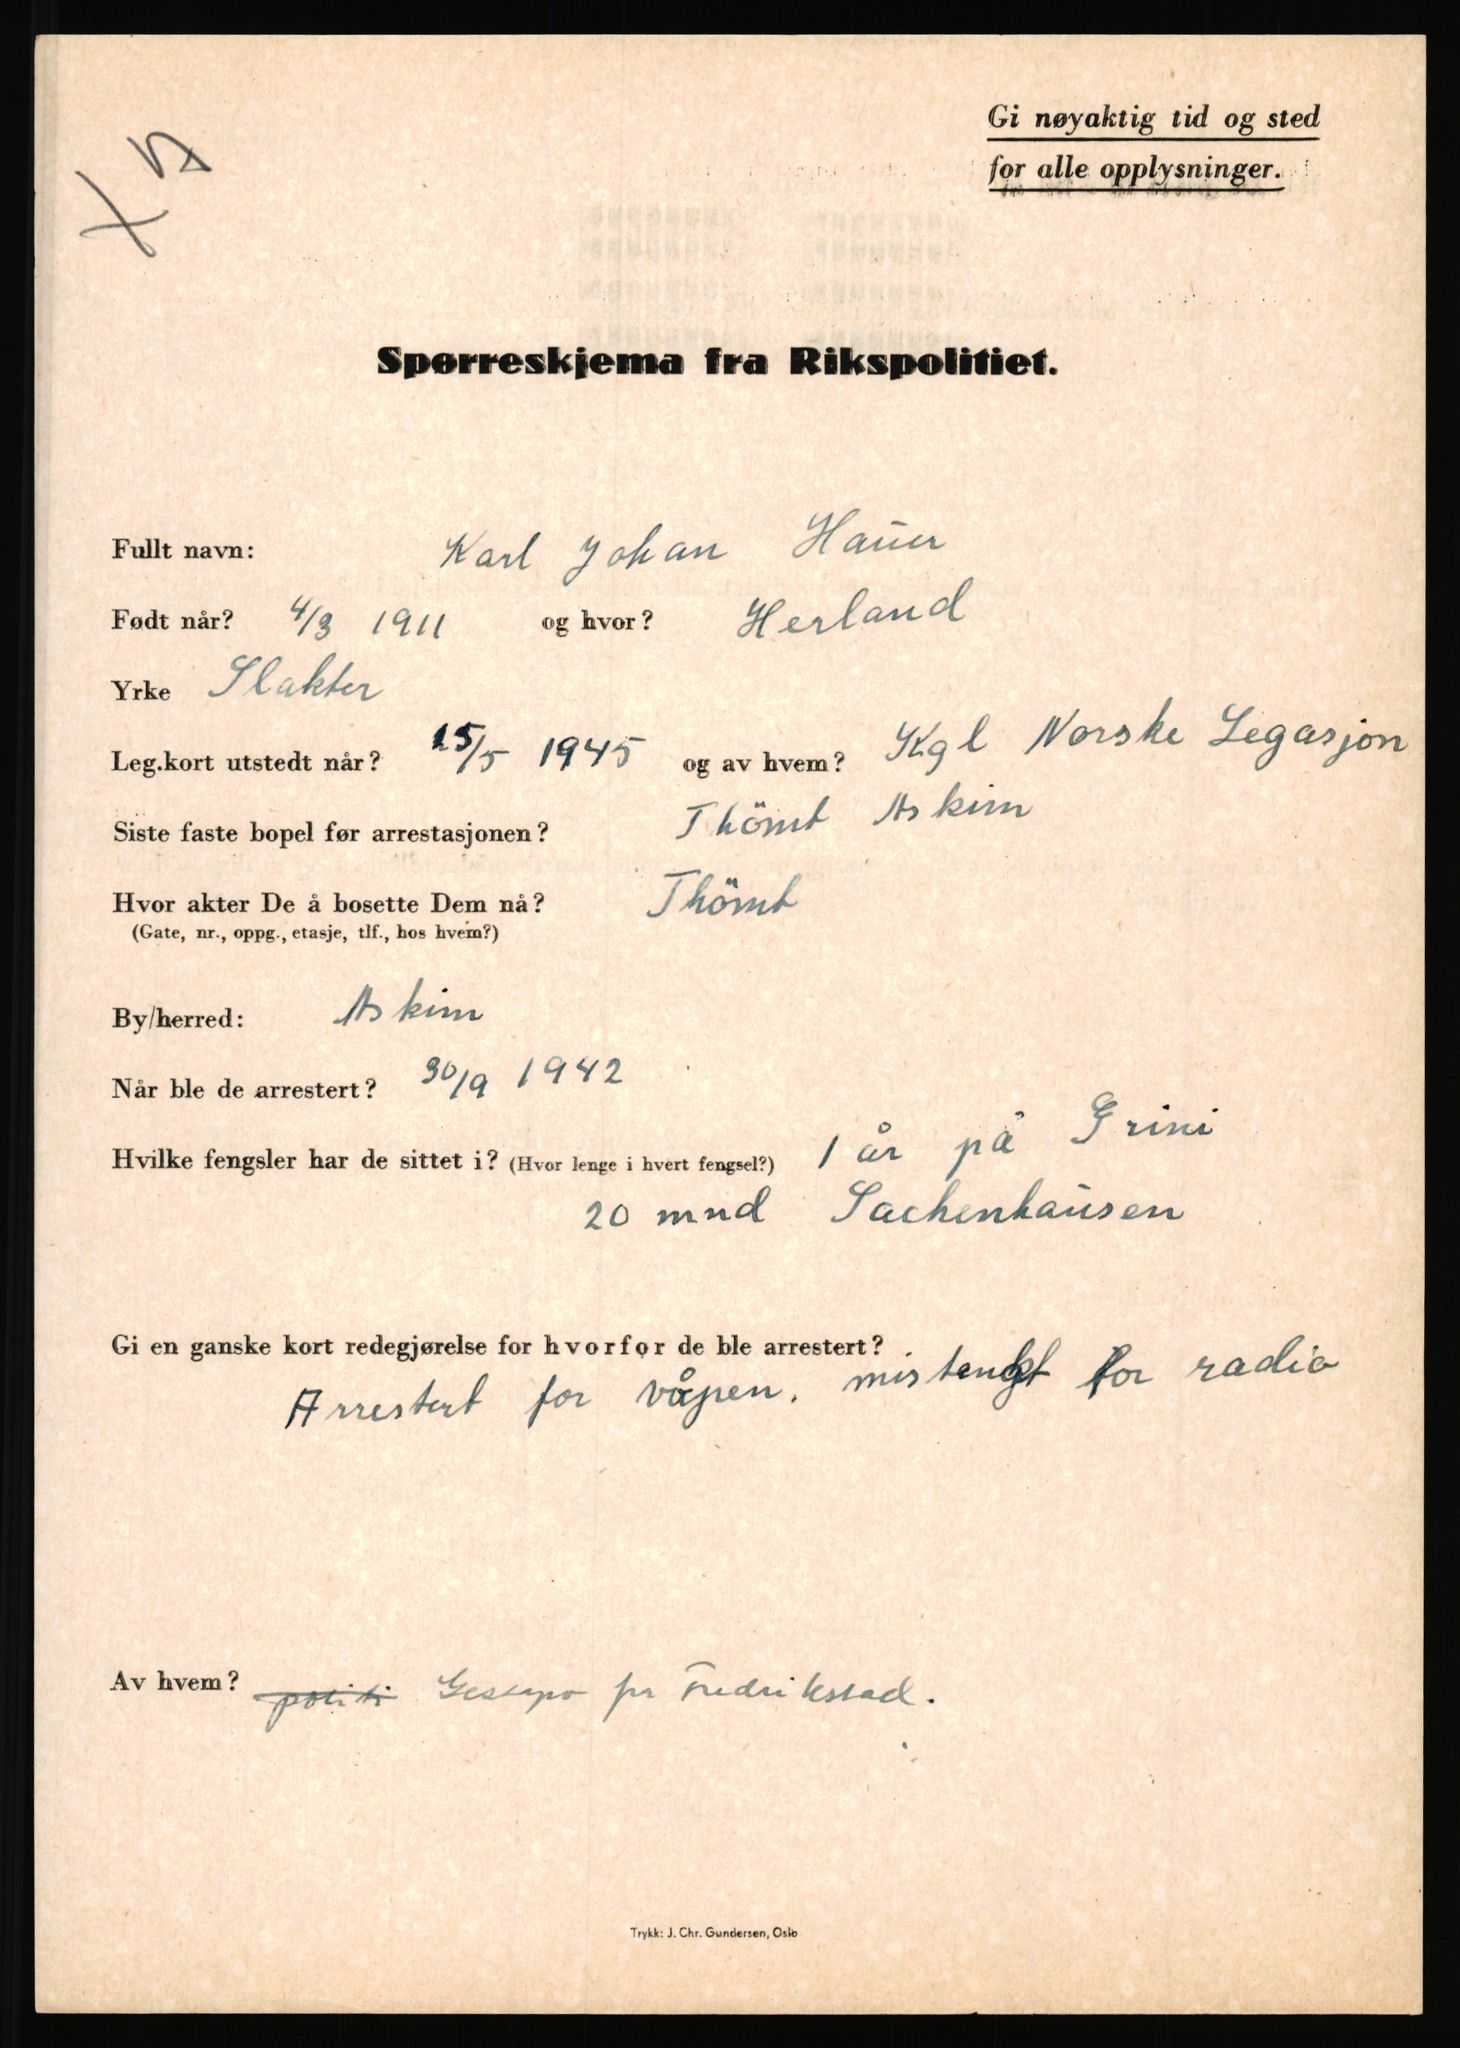 Gi nøyaktig tid og sted
for alle opplysninger.
Spørreskjema fra Rikspolitiet.
Fullt navn: Karl Johan Hauer
Født når? 4/3 1911 og hvor? Herland
Yrke Slakter
Leg.kort utstedt når? 15/5 1945 og av hvem? Kgl Norske Legasjon
Siste faste bopel før arrestasjonen? Thömt Askim
Hvor akter De å bosette Dem nå? Thömt
(Gate, nr., oppg., etasje, tlf., hos hvem?)
By/herred: Askim
Når ble de arrestert? 30/9 1942
Hvilke fengsler har de sittet i? (Hvor lenge i hvert fengsel?) 1 år på Grini
20 mnd Sachenhausen
Gi en ganske kort redegjørelse for hvorfor de ble arrestert?
Arrestert for våpen. mistenkt for radio
Av hvem? politi Gestapo fra Fredrikstad.
Trykk: J. Chr. Gundersen, Oslo